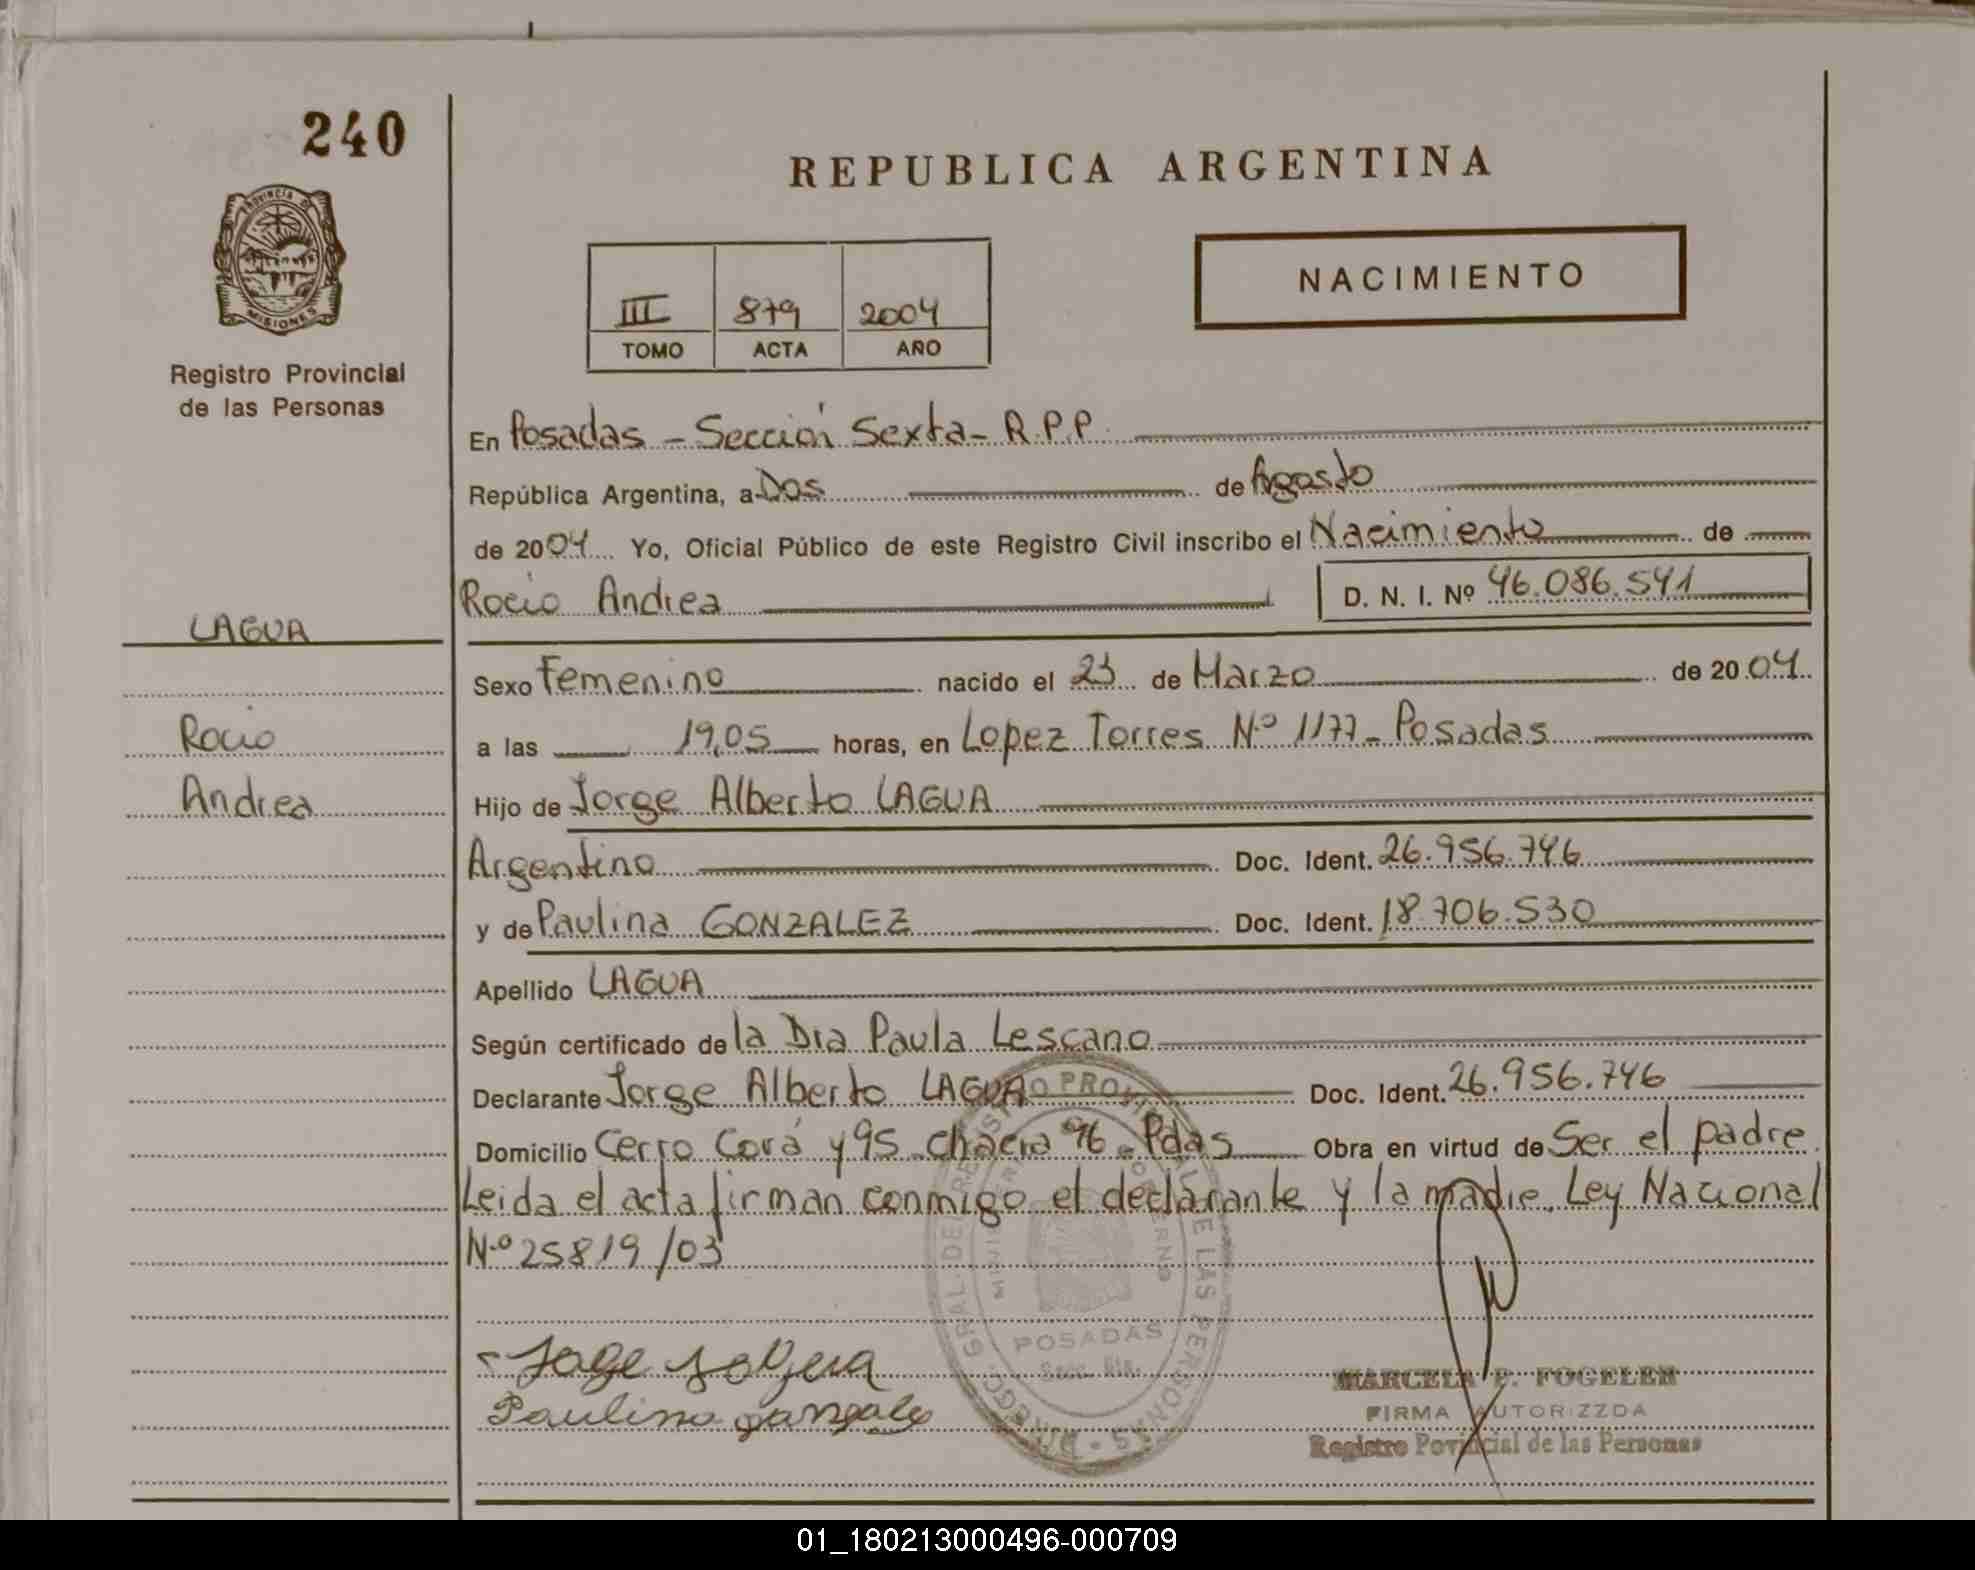 240
REPUBLICA ARGENTINA
PROVINCIA DE
MISIONES
NACIMIENTO
III 879 2004
TOMO ACTA AÑO
Registro Provincial
de las Personas
En Posadas - Sección Sexta - R.P.P.
República Argentina, a Dos de Agosto
de 2004 Yo, Oficial Público de este Registro Civil inscribo el Nacimiento de
Rocio Andrea D. N. I. Nº 46.086.541
LAGUA
Sexo Femenino nacido el 23 de Marzo de 2004
Rocio
a las 19,05 horas, en Lopez Torres Nº 1177 - Posadas
Andrea
Hijo de Jorge Alberto LAGUA
Argentino Doc. Ident. 26.956.746
y de Paulina GONZALEZ Doc. Ident. 18.706.530
Apellido LAGUA
Según certificado de la Dra Paula Lescano
Declarante Jorge Alberto LAGUA Doc. Ident. 26.956.746
Domicilio Cerro Corá y 95 - chacra 96 - Pdas Obra en virtud de Ser el padre.
Leida el acta firman conmigo el declarante y la madre. Ley Nacional
Nº 25819/03
POSADAS
Jorge
Paulina Gonzalez
MARCELA P. FOGELER
FIRMA AUTORIZZDA
Registro Povincial de las Personas
01_180213000496-000709